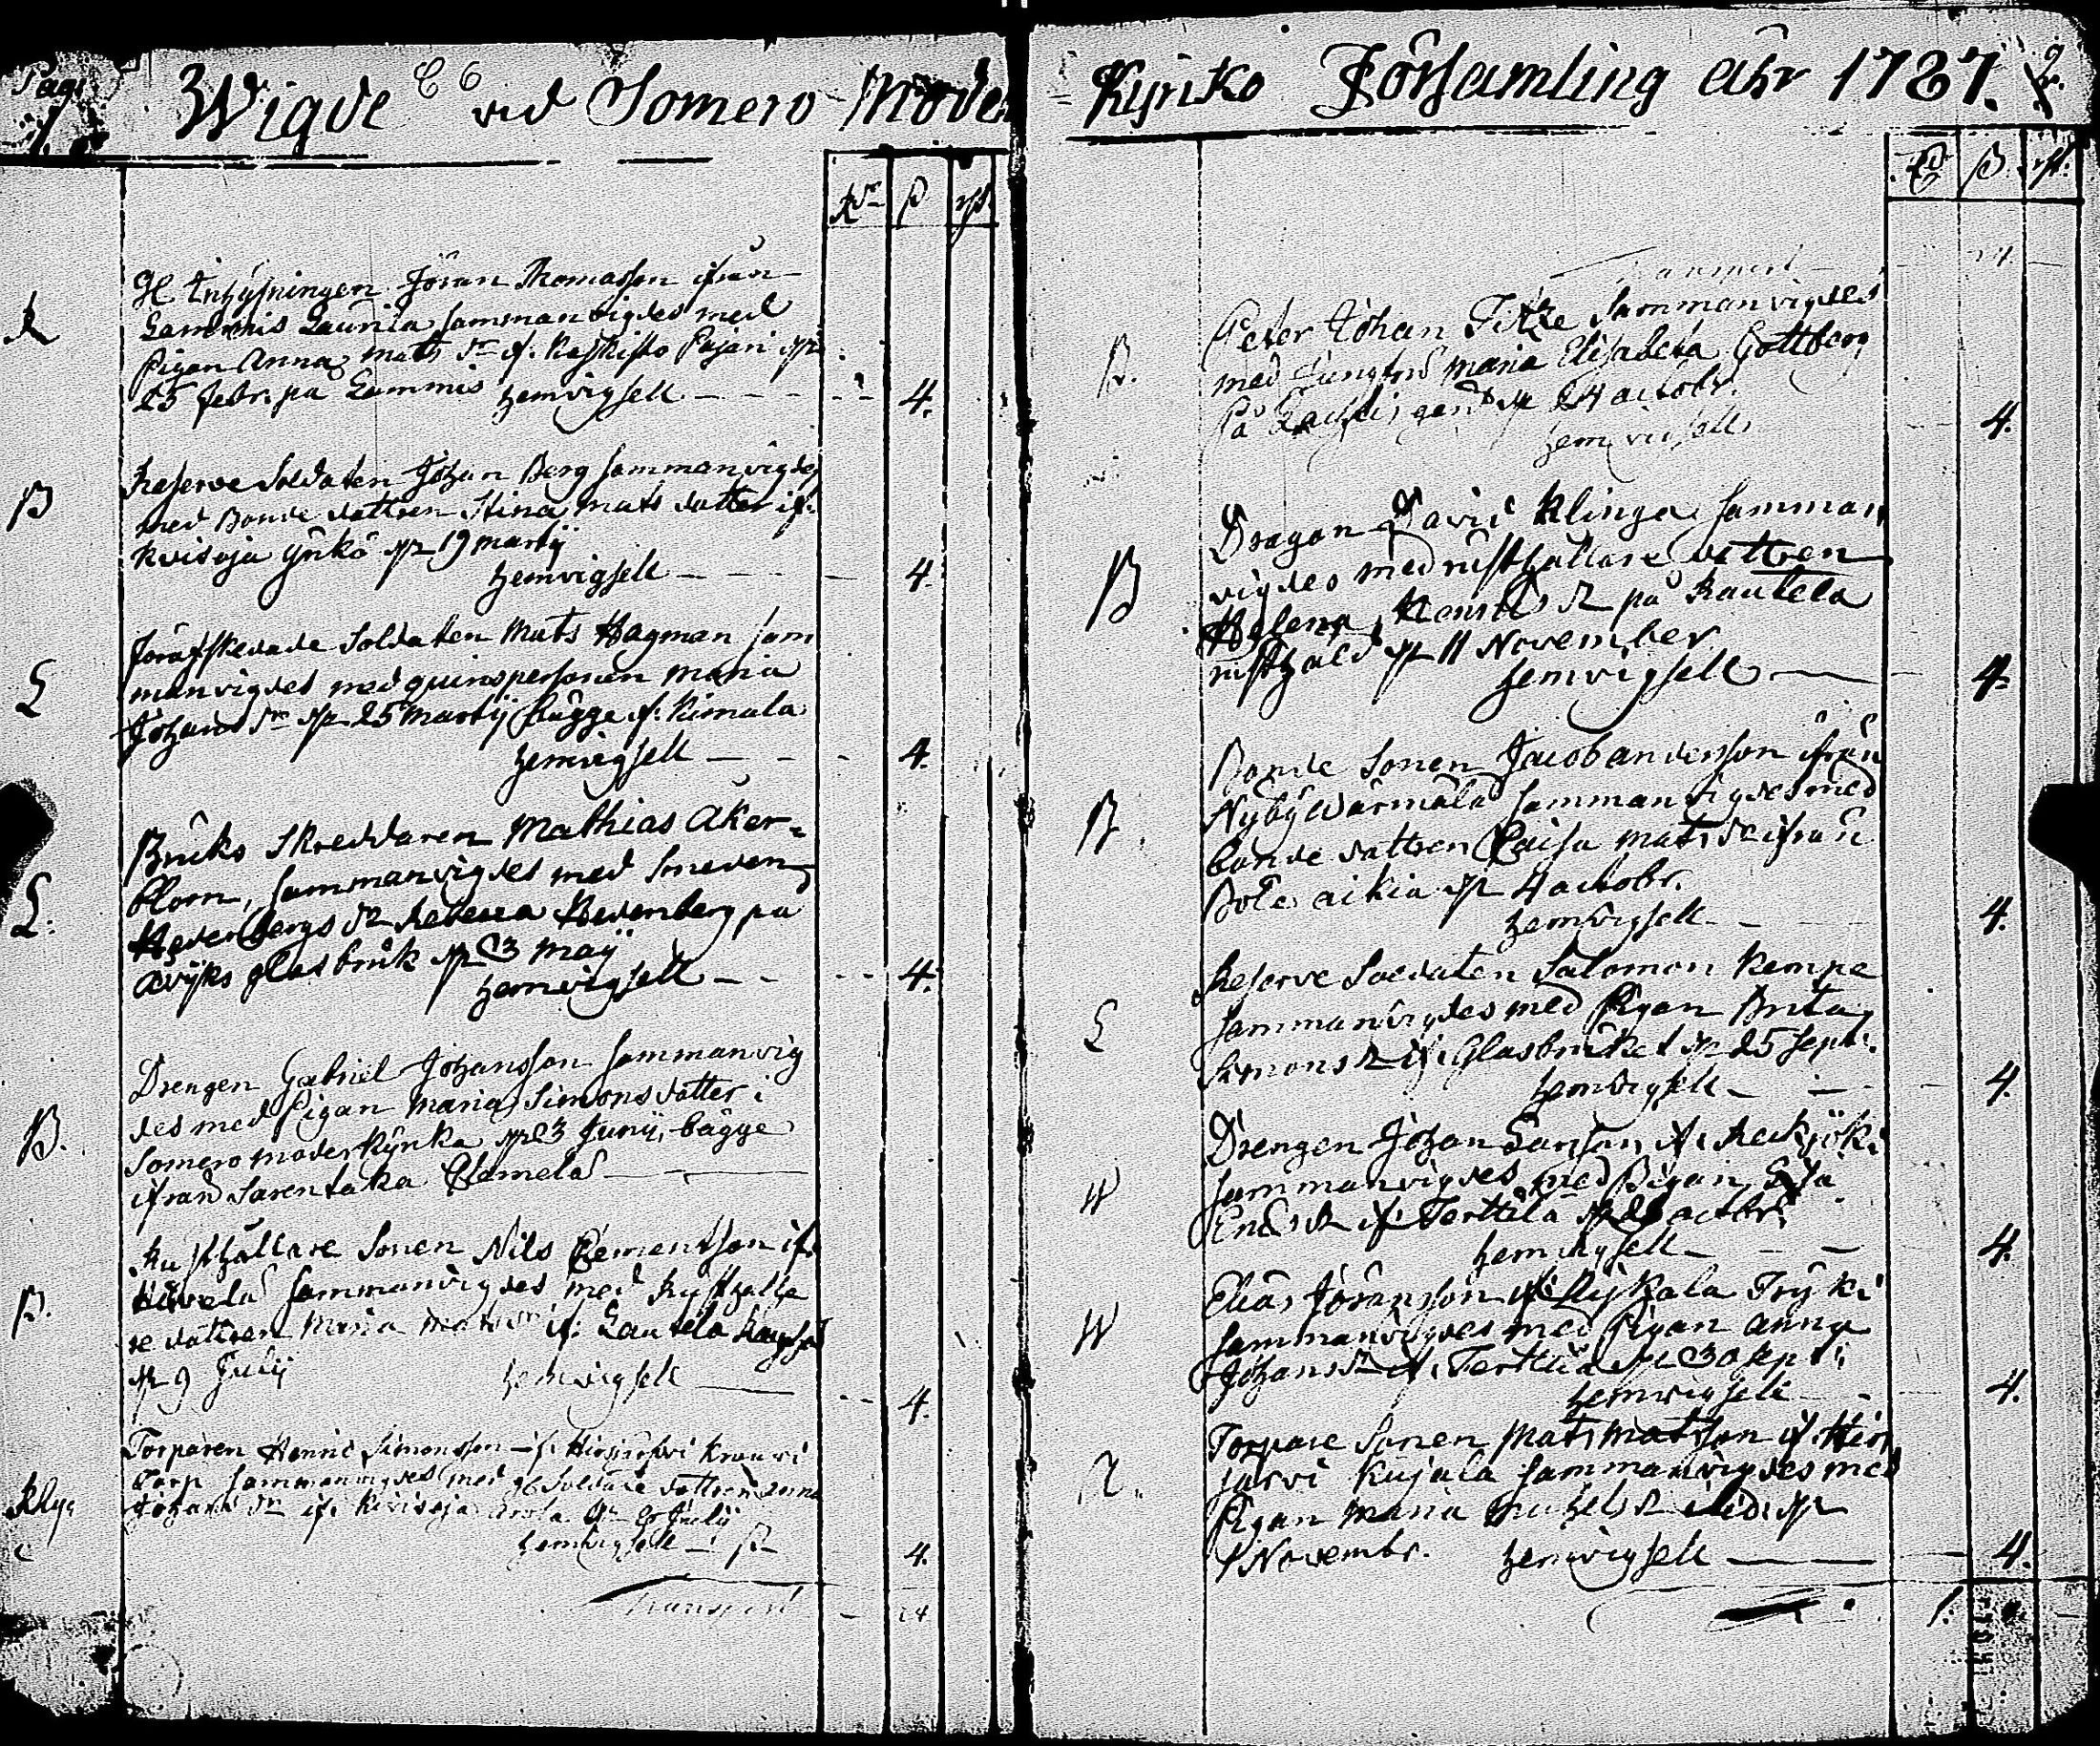 Pag. 1
Wigde vid Somero Moder
Rdr ß rst.
Inhysningen Jöran Thomasson ifrån
Lammis Launila sammanvigdes med
Pigan Anna Mats dr if.
25 Febr. på Lammis hemvigsell 4.
R
Reserve Soldaten Johan Berg sammanvigdes
med Bonde dottren Stina Mats dotter if.
Kvisoja Yrkö d. 19 Martij
hemvigsell 4.
B
Förafskedade Soldaten Mats Hagman sam
manvigdes med quinspersonen Maria
Johans dr d. 25 Martij bägge if. Kimala
hemvigsell 4.
L
Bruks Skreddaren Mathias Åker-
blom, sammanvigdes med Smeden
Hedenbergs dr Rebecca Hedenberg på
Åvijks glasbruk d. 3 Maij
hemvigsell 4.
L.
Drengen Gabriel Johansson sammanvig
des med Pigan Maria Simons dotter i
Somero moderkyrka d. 3 Junij, bägge
ifrån Sarentaka
B.
Rusthållare Sonen Nils Clementsson if.
sammanvigdes med Rusthålla
re dottren Maria Mats dr if. Lautela
d. 9 Julij hemvigsell 4.
B.
Torparen Henric Simonsson if. Hirsjärfvi
Torp sammanvigdes med Soldate dottren Anna
Johans dr if. Kivisoja Julij
hemvigsell 4.
Transport 24
Kyrko Församling åhr 1787. 2.
ß rst.
Transport 24
Peter Johan Titze sammanvigdes
med Jungfru Maria Elisabeta Gottberg
På gård d. 24 octobr.
hemvigsell 4.
B.
Dragon David Klinga samman
vigdes med rusthållare dottren
Helena Henrics dr på Rautela
rusthåld d. 11 November
hemvigsell 4.
B
Bonde Sonen Jacob Andersson ifrån
Nyby Wärmälä sammanvigdes med
bonde dottren Caisa Mats dr ifrån
d. 4 octobr.
hemvigsell 4.
B.
Reserve Soldaten Salomon Kempe
sammanvigdes med Pigan Brita
Simons dr if. Glasbruket d. 25 Sept.
hemvigsell 4.
L
Drengen Johan Larsson if.
sammanvigdes med Pigan
Erics dr if. Terttilä octobr.
hemvigsell 4.
W
Elias Jöransson if.
sammanvigdes med Pigan Anna
Johans dr if. Terttilä d. 30 Sept.
hemvigsell 4.
W
Torpare Sonen Mats Matsson if. Hir
järvi Kujala sammanvigdes med
Pigan Maria Michels dr
Novembr. hemvigsell 4.